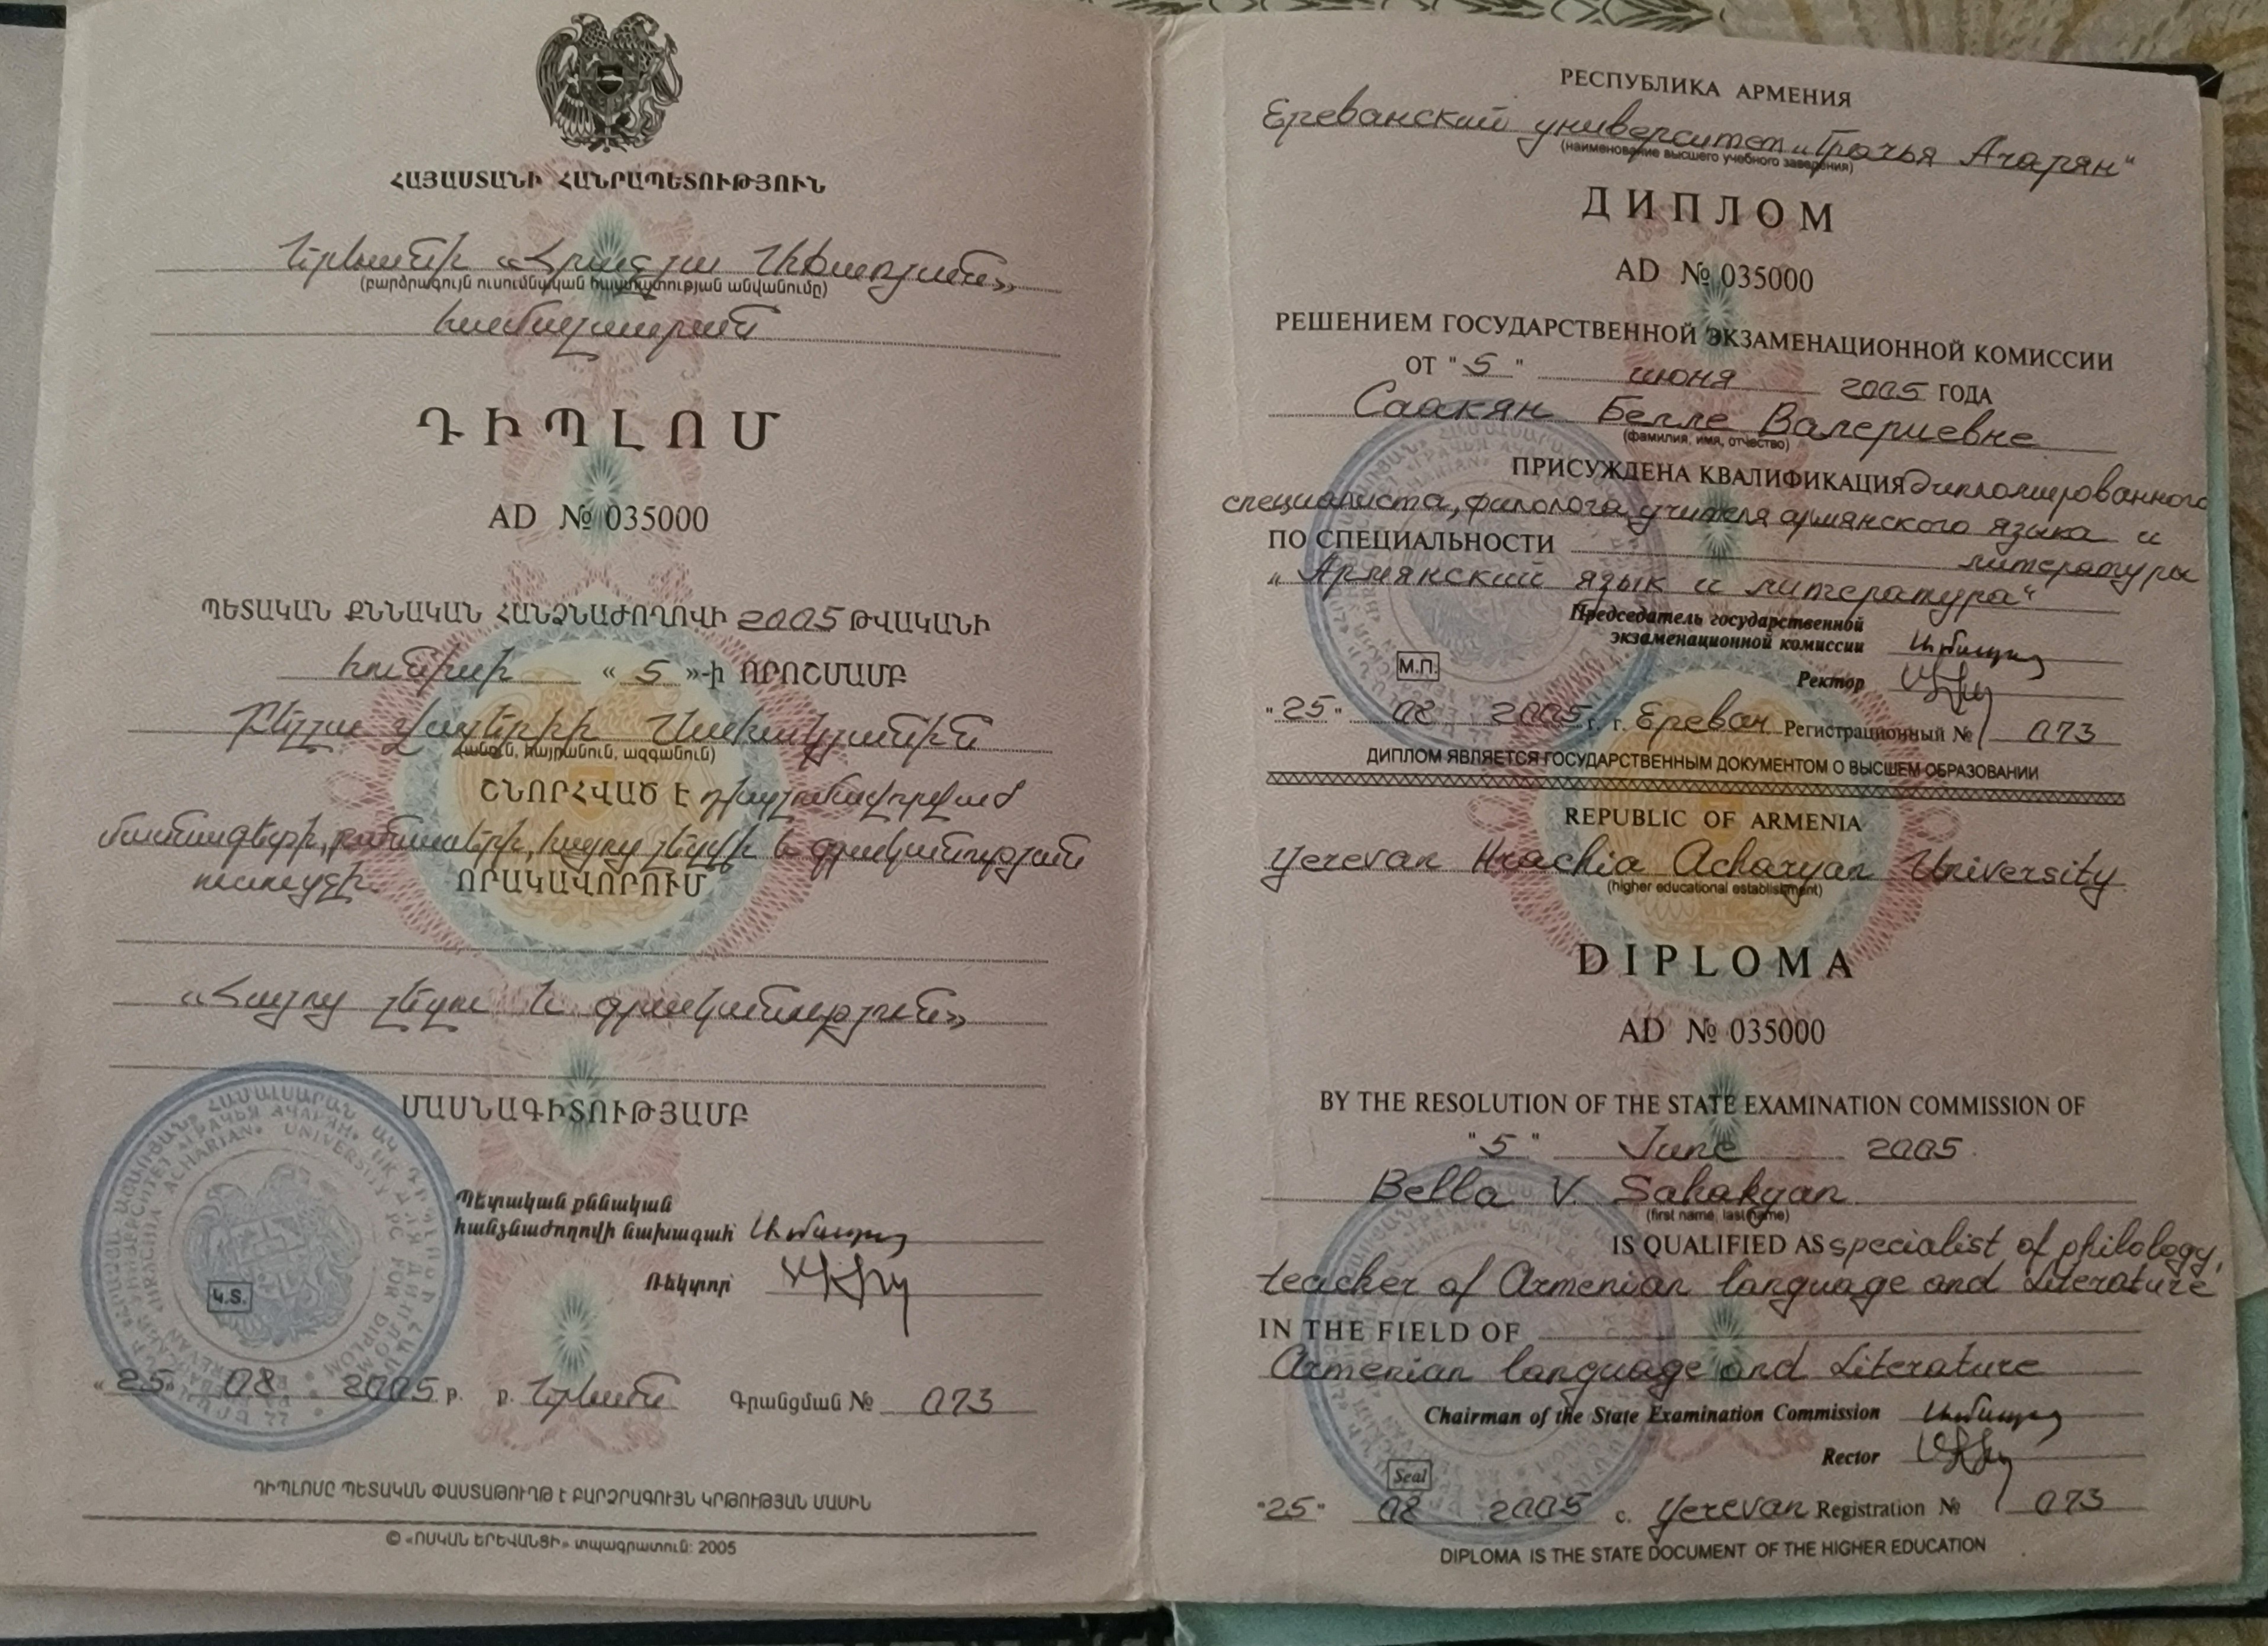 ՀԱՅԱՍՏԱՆԻ ՀԱՆՐԱՊԵՏՈՒԹՅՈՒՆ
Երևանի «Հրաչյա Աճառյան»
(բարձրագույն ուսումնական հաստատության անվանումը)
համալսարան
ԴԻՊԼՈՄ
AD № 035000
ՊԵՏԱԿԱՆ ՔՆՆԱԿԱՆ ՀԱՆՁՆԱԺՈՂՈՎԻ 2005 ԹՎԱԿԱՆԻ
հունիսի « 5 »-ի ՈՐՈՇՄԱՄԲ
Բելլա Վալերիի Սահակյանին
(անուն, հայրանուն, ազգանուն)
ՇՆՈՐՀՎԱԾ Է դիպլոմավորված
մասնագետի, բանասերի, հայոց լեզվի և գրականության
ուսուցչի ՈՐԱԿԱՎՈՐՈՒՄ
«Հայոց լեզու և գրականություն»
ՄԱՍՆԱԳԻՏՈՒԹՅԱՄԲ
Պետական քննական
հանձնաժողովի նախագահ
Ռեկտոր
Կ.Տ.
« 25 » 08 2005 թ. ք. Երևան Գրանցման № 073
ԴԻՊԼՈՄԸ ՊԵՏԱԿԱՆ ՓԱՍՏԱԹՈՒՂԹ Է ԲԱՐՁՐԱԳՈՒՅՆ ԿՐԹՈՒԹՅԱՆ ՄԱՍԻՆ
© «ՈՍԿԱՆ ԵՐԵՎԱՆՑԻ» տպագրատուն: 2005
РЕСПУБЛИКА АРМЕНИЯ
Ереванский университет „Грачья Ачарян“
(наименование высшего учебного заведения)
ДИПЛОМ
AD № 035000
РЕШЕНИЕМ ГОСУДАРСТВЕННОЙ ЭКЗАМЕНАЦИОННОЙ КОМИССИИ
ОТ " 5 " июня 2005 ГОДА
Саакян Белле Валериевне
(фамилия, имя, отчество)
ПРИСУЖДЕНА КВАЛИФИКАЦИЯ дипломированного
специалиста, филолога, учителя армянского языка и
ПО СПЕЦИАЛЬНОСТИ литературы
„Армянский язык и литература“
Председатель государственной
экзаменационной комиссии
М.П.
Ректор
" 25 " 08 2005 г. г. Ереван Регистрационный № 073
ДИПЛОМ ЯВЛЯЕТСЯ ГОСУДАРСТВЕННЫМ ДОКУМЕНТОМ О ВЫСШЕМ ОБРАЗОВАНИИ
REPUBLIC OF ARMENIA
Yerevan Hrachia Acharyan University
(higher educational establishment)
DIPLOMA
AD № 035000
BY THE RESOLUTION OF THE STATE EXAMINATION COMMISSION OF
" 5 " June 2005
Bella V. Sahakyan
(first name, last name)
IS QUALIFIED AS specialist of philology,
teacher of Armenian language and Literature
IN THE FIELD OF
Armenian language and Literature
Chairman of the State Examination Commission
Rector
Seal
" 25 " 08 2005 c. Yerevan Registration № 073
DIPLOMA IS THE STATE DOCUMENT OF THE HIGHER EDUCATION